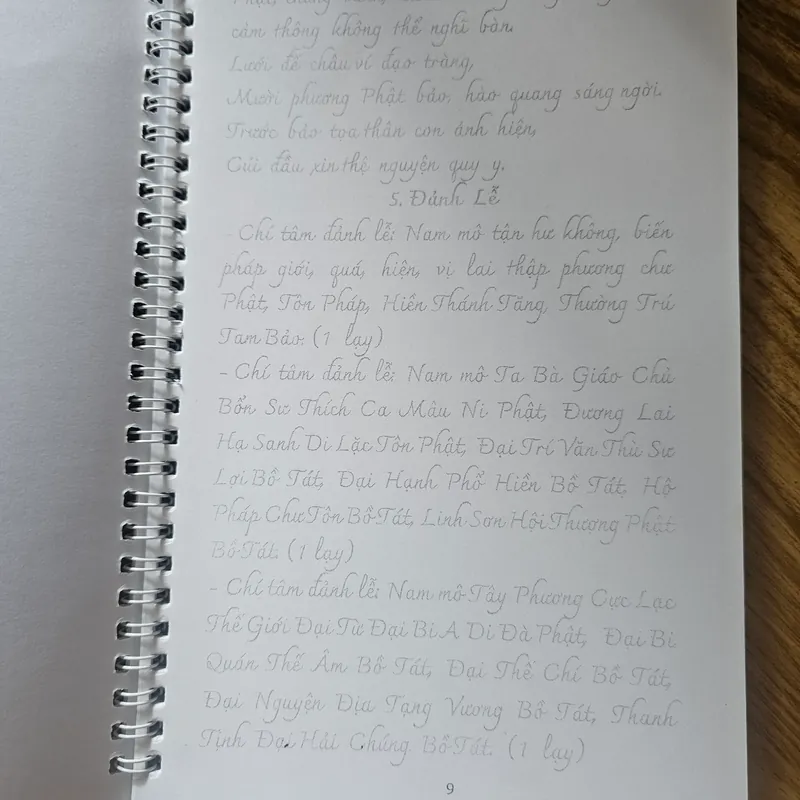 cảm thông không thể nghĩ bàn.
Lưới đế châu ví đạo tràng,
Mười phương Phật bảo, hào quang sáng ngời.
Trước bảo tọa thân con ảnh hiện,
Cúi đầu xin thệ nguyện quy y.
5. Đảnh Lễ
- Chí tâm đảnh lễ: Nam mô tận hư không, biến
pháp giới, quá, hiện, vị lai thập phương chư
Phật, Tôn Pháp, Hiền Thánh Tăng, Thường Trú
Tam Bảo. (1 lạy)
- Chí tâm đảnh lễ: Nam mô Ta Bà Giáo Chủ
Bổn Sư Thích Ca Mâu Ni Phật, Đương Lai
Hạ Sanh Di Lặc Tôn Phật, Đại Trí Văn Thù Sư
Lợi Bồ Tát, Đại Hạnh Phổ Hiền Bồ Tát, Hộ
Pháp Chư Tôn Bồ Tát, Linh Sơn Hội Thượng Phật
Bồ Tát. (1 lạy)
- Chí tâm đảnh lễ: Nam mô Tây Phương Cực Lạc
Thế Giới Đại Từ Đại Bi A Di Đà Phật, Đại Bi
Quán Thế Âm Bồ Tát, Đại Thế Chí Bồ Tát,
Đại Nguyện Địa Tạng Vương Bồ Tát, Thanh
Tịnh Đại Hải Chúng Bồ Tát. (1 lạy)
9